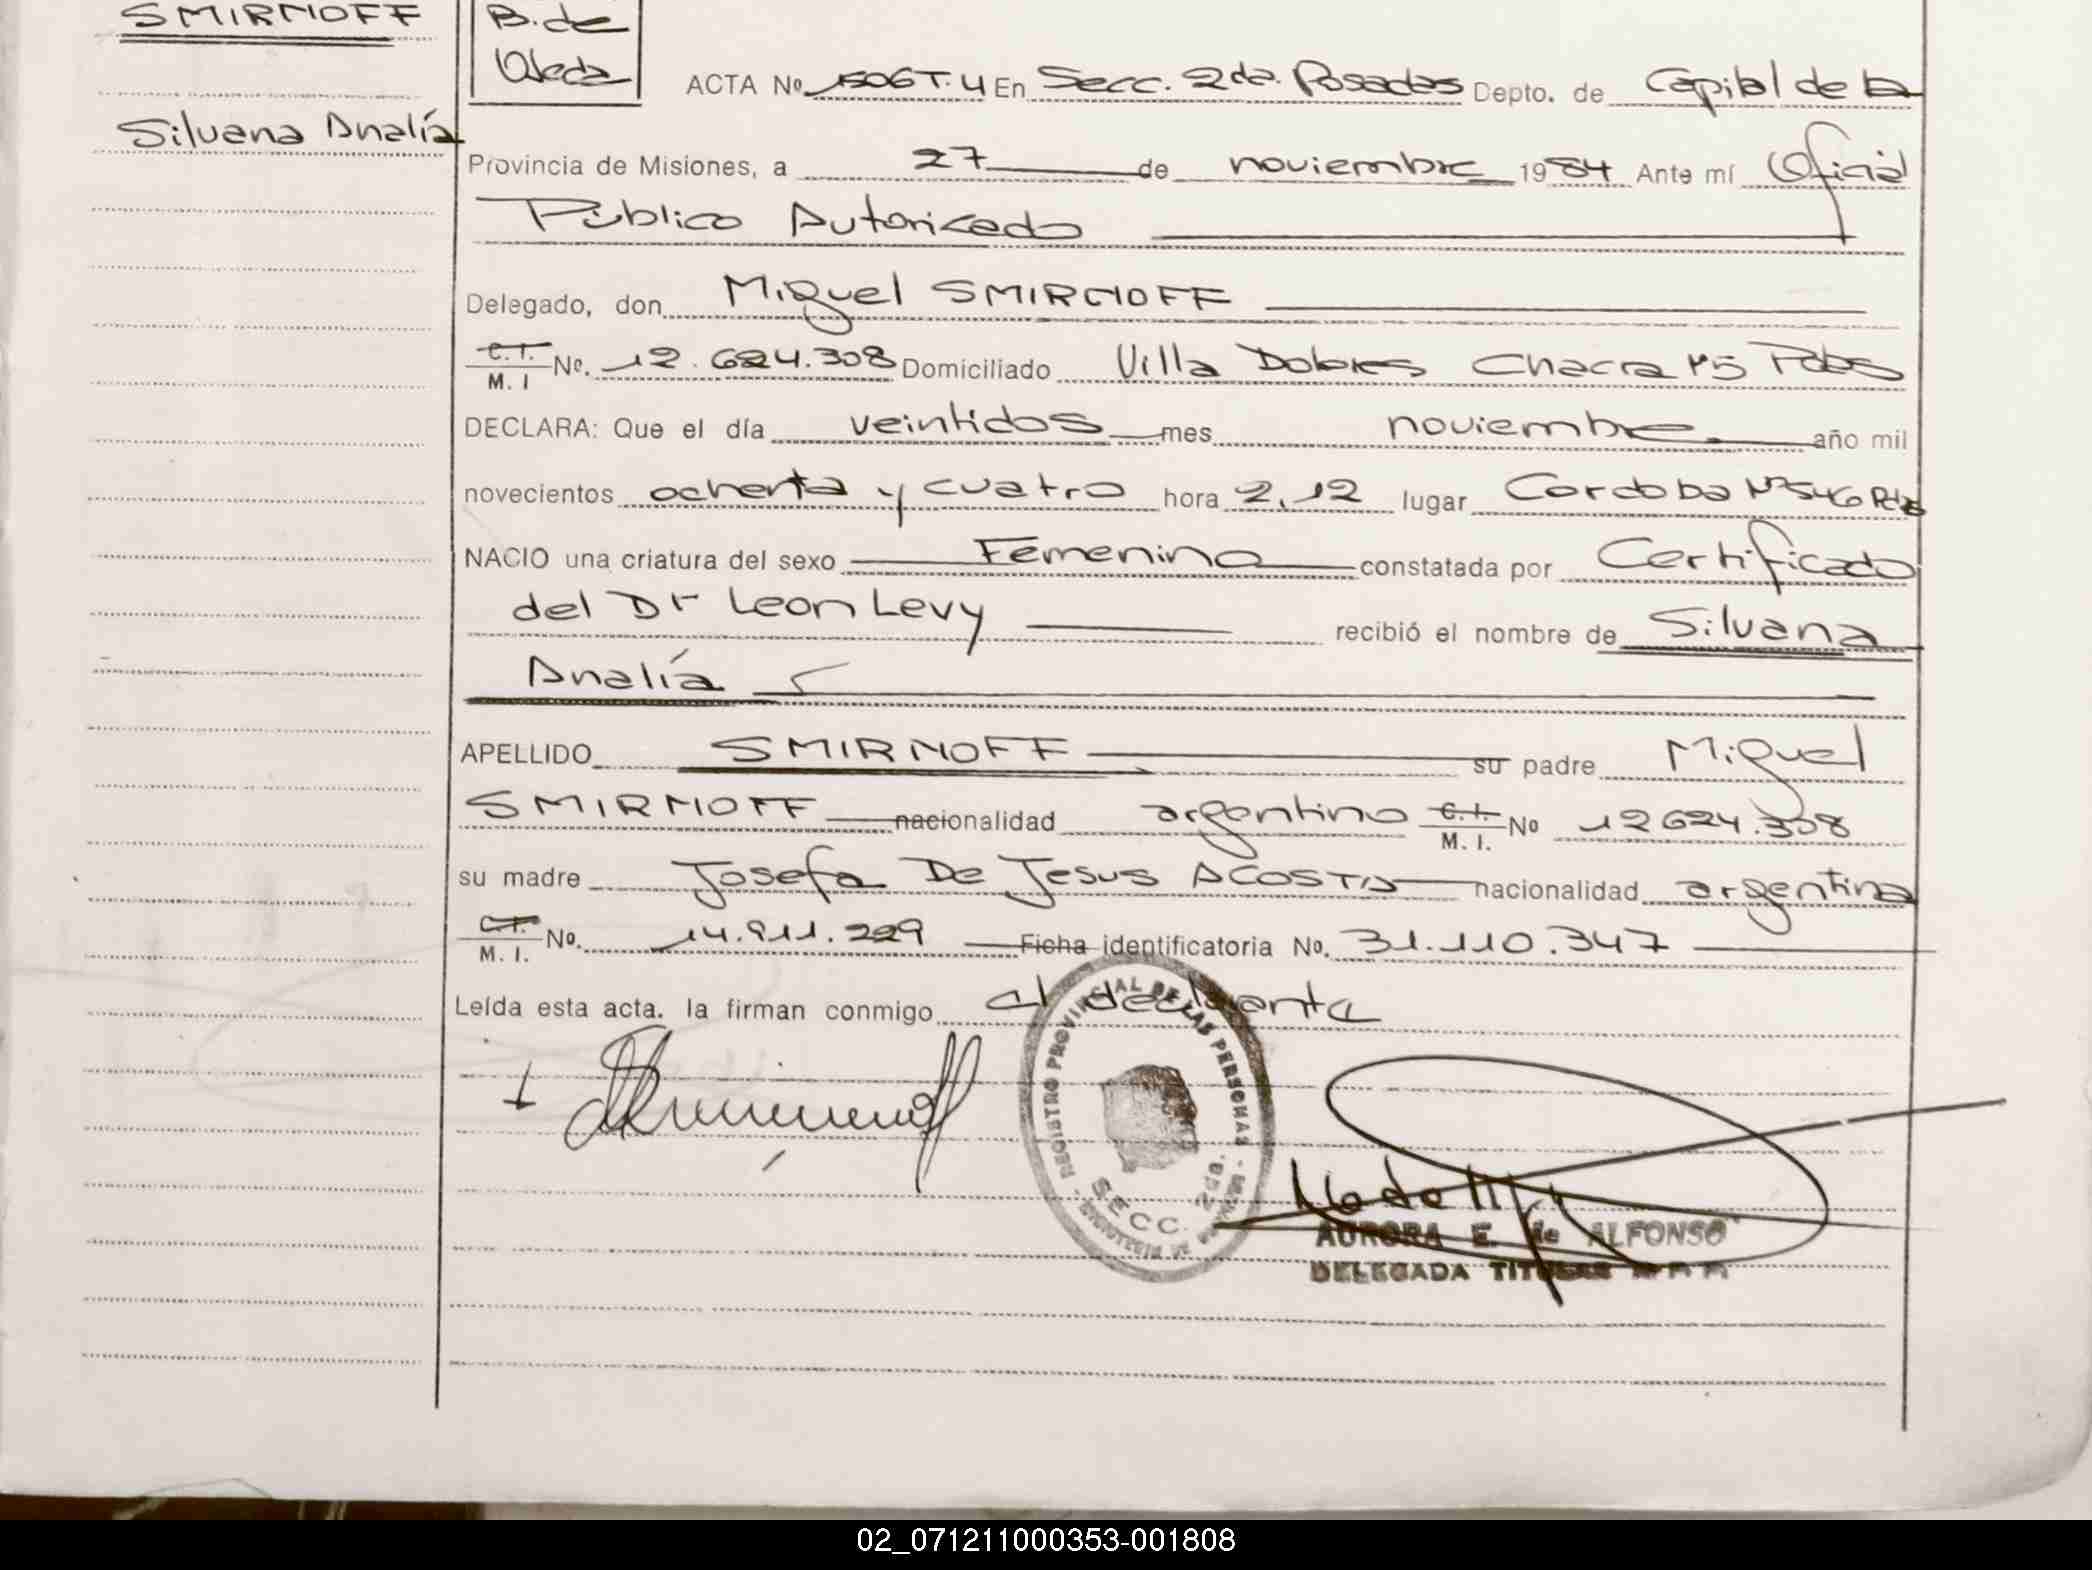 SMIRNOFF
Silvana Analía
B. de
Ojeda
ACTA Nº 1506 T. 4 En Secc. 2da. Posadas Depto. de Capital de la
Provincia de Misiones, a 27 de noviembre 1984 Ante mí Oficial
Público Autorizado
Delegado, don Miguel SMIRNOFF
C.I. M. I Nº. 12.624.308 Domiciliado Villa Dolores Chacra Pdas
DECLARA: Que el día veintidos mes noviembre año mil
novecientos ochenta y cuatro hora 2,12 lugar Cordoba Nº 546 Pdas
NACIO una criatura del sexo Femenino constatada por Certificado
del Dr Leon Levy recibió el nombre de Silvana
Analía
APELLIDO SMIRNOFF su padre Miguel
SMIRNOFF nacionalidad argentino C.I. M. I. Nº 12624.308
su madre Josefa De Jesus ACOSTA nacionalidad argentina
C.I. M. I. Nº. 14.911.229 Ficha identificatoria Nº. 31.110.347
Leída esta acta. la firman conmigo el declarante
REGISTRO PROVINCIAL DE LAS PERSONAS
SECC. 2da.
AURORA E. de ALFONSO
DELEGADA TITULAR
02_071211000353-001808